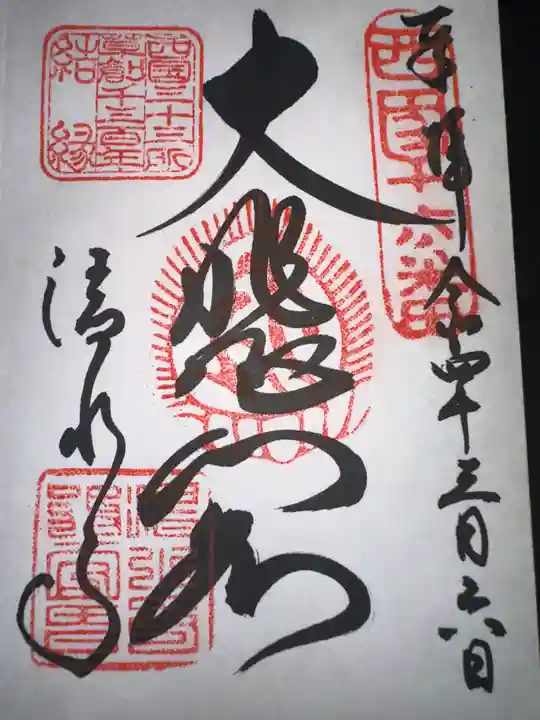 西国十六番
奉拝 令和四年三月二六日
大悲閣
西國三十三所
草創千三百年
結縁
清水寺